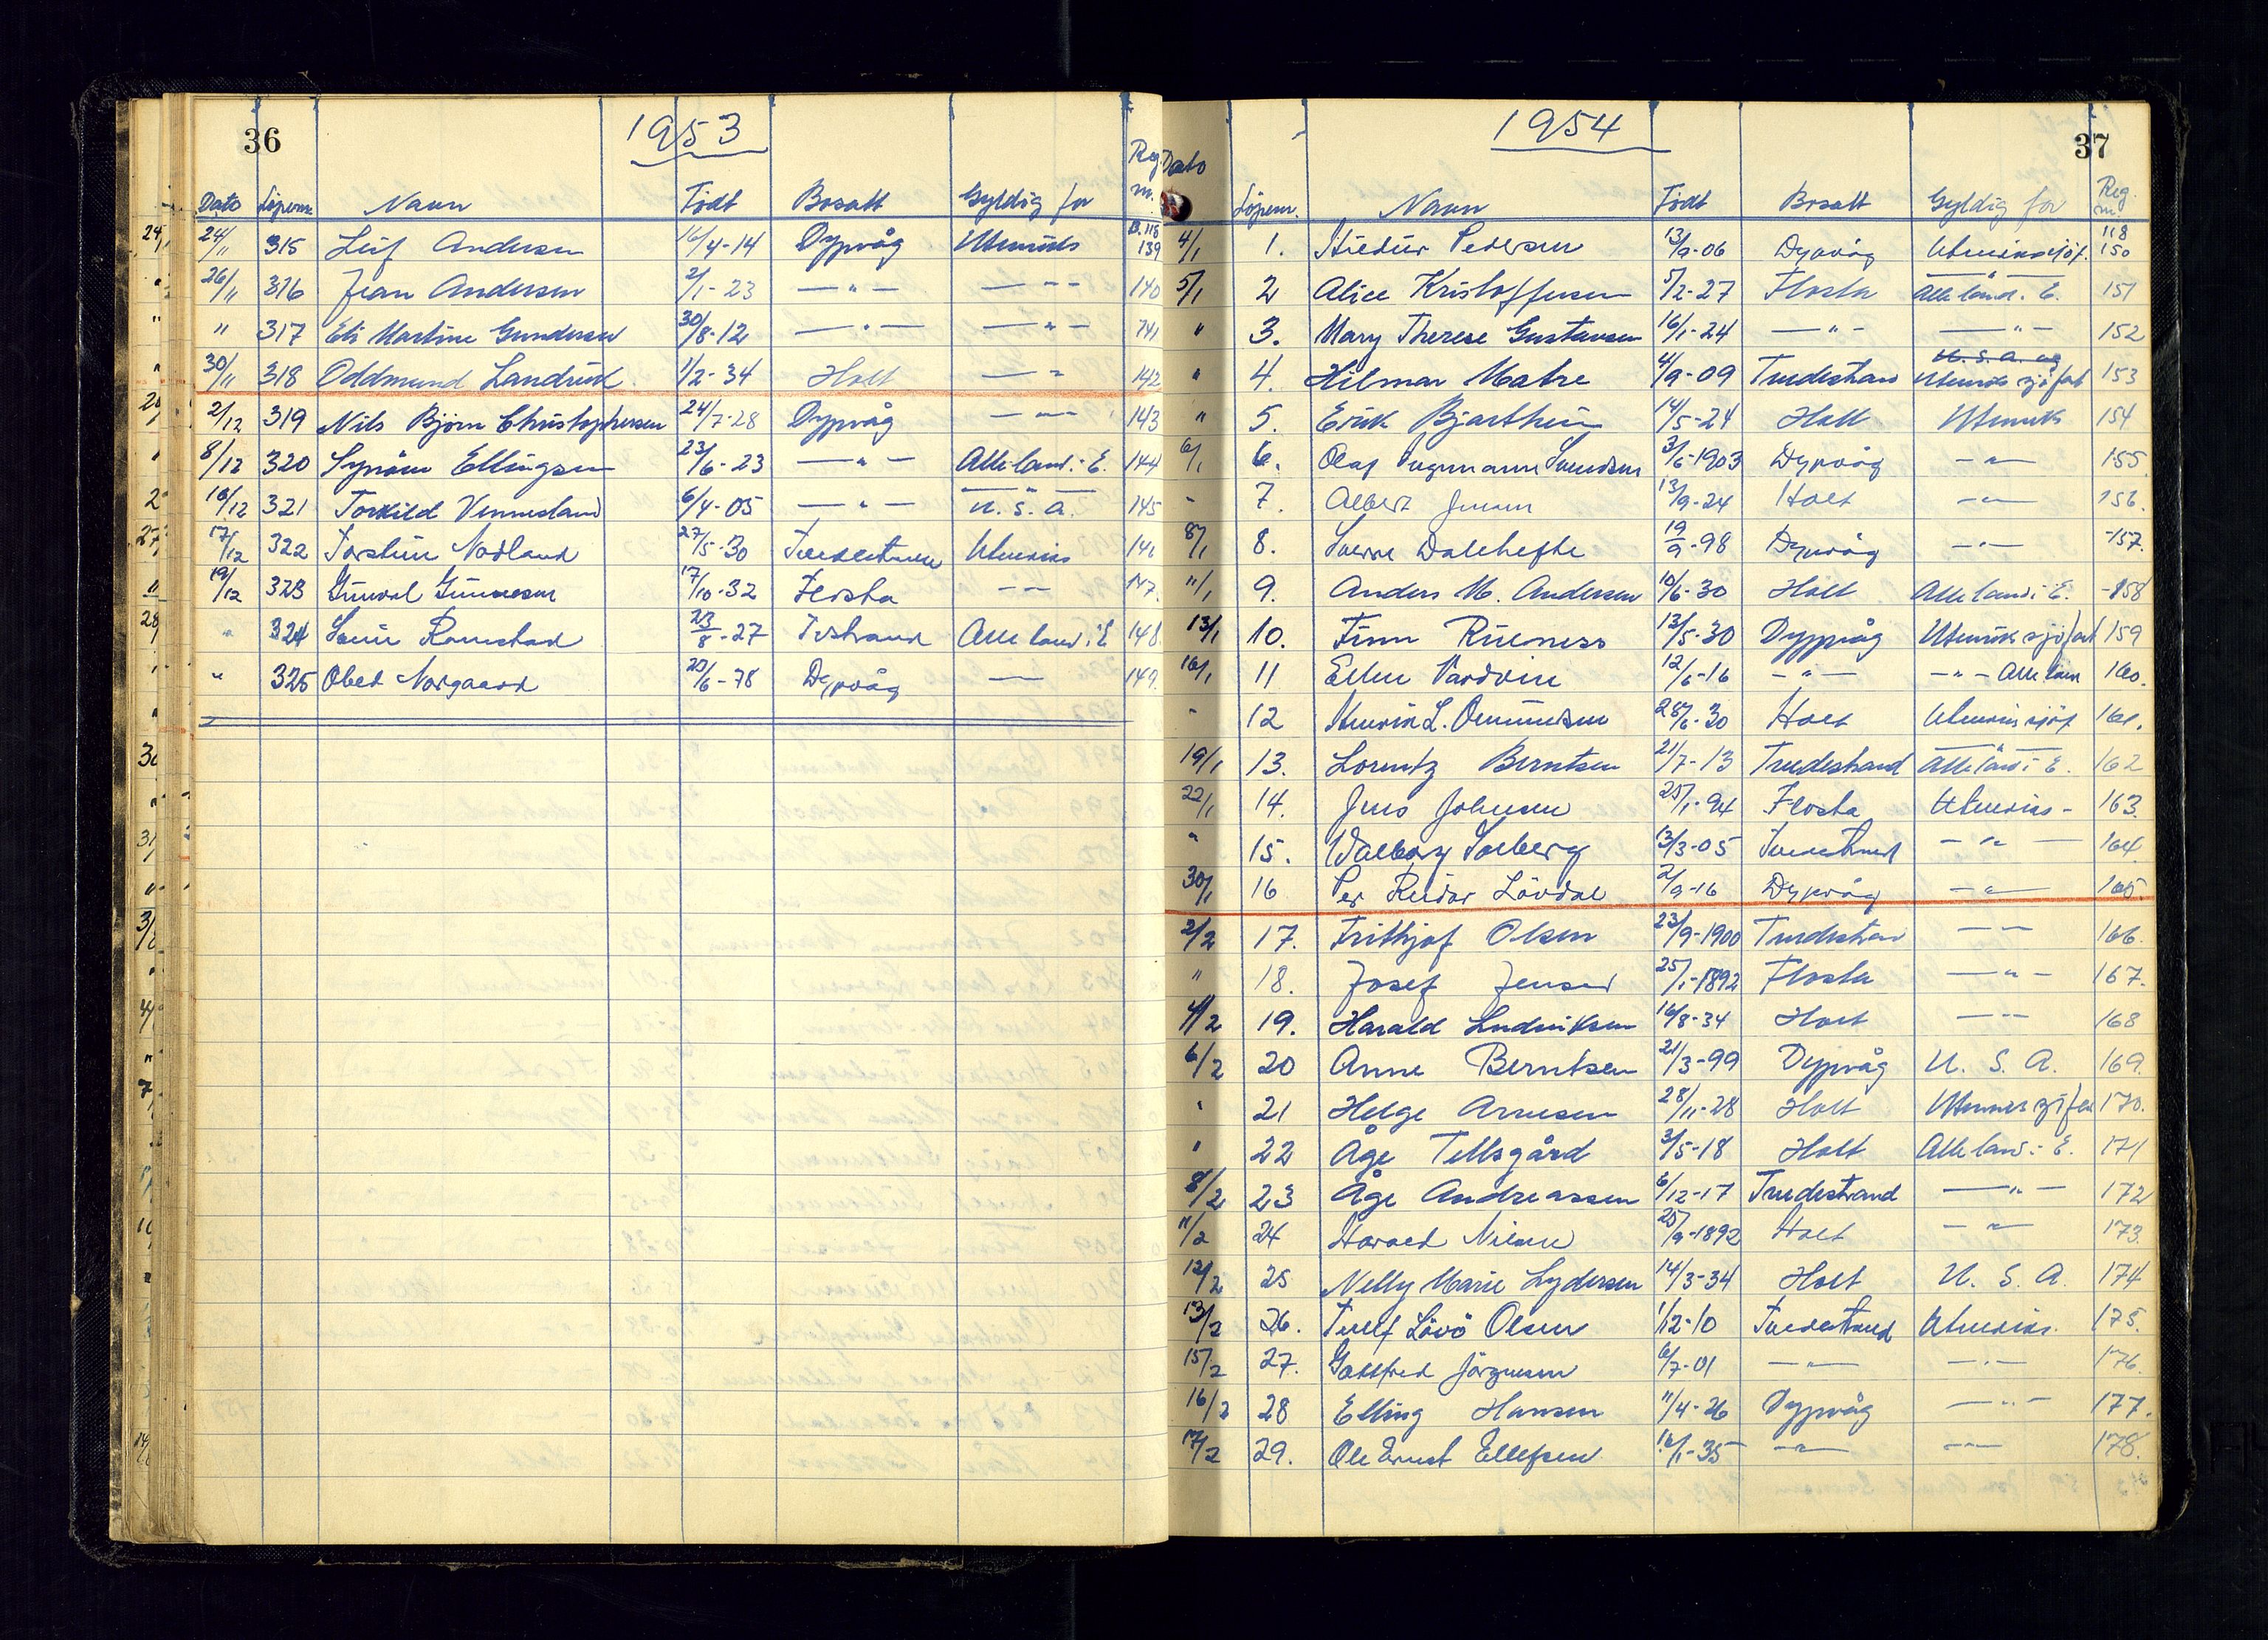 36
1953
Dato Löpenr. Navn Födt Bosatt Gyldig for Reg. nr.
24/11 315 Leif Andersen 16/4-14 Dypvåg Utenriks B.118 139
26/11 316 Jean Andersen 2/1-23 —"— —"— 140
" 317 Eli Martine Gundersen 30/8-12 —"— —"— 141
30/11 318 Oddmund Landrud 1/2-34 Holt —"— 142
2/12 319 Nils Björn Christophersen 24/7-28 Dypvåg —"— 143
8/12 320 Synöve Ellingsen 23/6-23 —"— Alle land i E. 144
10/12 321 Torkild Vennesland 6/4-05 —"— U.S.A. 145
17/12 322 Torstein Nodland 27/5-30 Tvedestrand Utenriks 146
19/12 323 Gunval Gunnesen 17/10-32 Flosta —"— 147.
" 324 Svein Ramstad 23/8-27 Tvstrand Alle land i E 148.
" 325 Obed Norgaard 20/6-78 Dypvåg — 149.
37
1954
Dato Löpenr. Navn Födt Bosatt Gyldig for Reg. nr.
4/1 1. Pedersen 13/9-06 Dypvåg Utenrikssjöf. 118 150
5/1 2 Alice Kristoffersen 5/2-27 Flosta Alle land i E. 151
" 3. Mary Therese Gustavsen 16/1-24 —"— —"— 152
" 4. Hilmar Matre 4/9-09 Tvedestrand U.S.A. og Utenriks sjöfart 153
" 5. Erik Bjorthein 14/5-24 Holt Utenriks 154
6/1 6. Olaf Svendsen 3/6-1903 Dypvåg —"— 155
" 7. Albert Jensen 13/9-24 Holt —"— 156.
8/1 8. Sverre Dalehefte 19/9-98 Dypvåg —"— 157.
11/1 9. Anders M. Andersen 10/6-30 Holt Alle land i E. 158
13/1 10. Finn Riisness 13/5-30 Dypvåg Utenriks sjöfart 159
16/1 11 Ellen Vardvin 12/6-16 —"— —"— Alle land 160.
" 12 Henrik L. Omundsen 28/6-30 Holt Utenriks sjöf 161.
19/1 13. Lorentz Berntsen 21/7-13 Tvedestrand Alle land i E. 162
22/1 14. Jens Johnsen 25/1-94 Flosta Utenriks - 163.
" 15. Walborg Solberg 13/3-05 Tvedestrand —"— 164.
30/1 16 Per Reidar Lövdal 2/9-16 Dypvåg —"— 165.
2/2 17. Frithjof Olsen 23/9-1900 Tvedestrand —"— 166.
" 18. Josef Jensen 25/1-1892 Flosta —"— 167.
4/2 19. Harald Ludviksen 16/8-34 Holt —"— 168
6/2 20 Anne Berntsen 21/3-99 Dypvåg U.S.A. 169.
" 21 Helge Arnesen 28/11-28 Holt Utenriks sjöfart 170.
" 22 Åge Tellsgård 3/5-18 Holt Alle land i E. 171
8/2 23 Åge Andreassen 6/12-17 Tvedestrand —"— 172
11/2 24 Harald Nilsen 25/9-1892 Holt —"— 173.
12/2 25 Nelly Marie Lydersen 14/3-34 Holt U.S.A. 174
13/2 26. Tellef Lövö Olsen 1/12-10 Tvedestrand Utenriks. 175.
15/2 27. Gottfred Jörgensen 6/7-01 —"— —"— 176.
16/2 28 Elling Hansen 11/4-26 Dypvåg —"— 177.
17/2 29. Ole Ernst Ellefsen 16/1-35 —"— —"— 178.